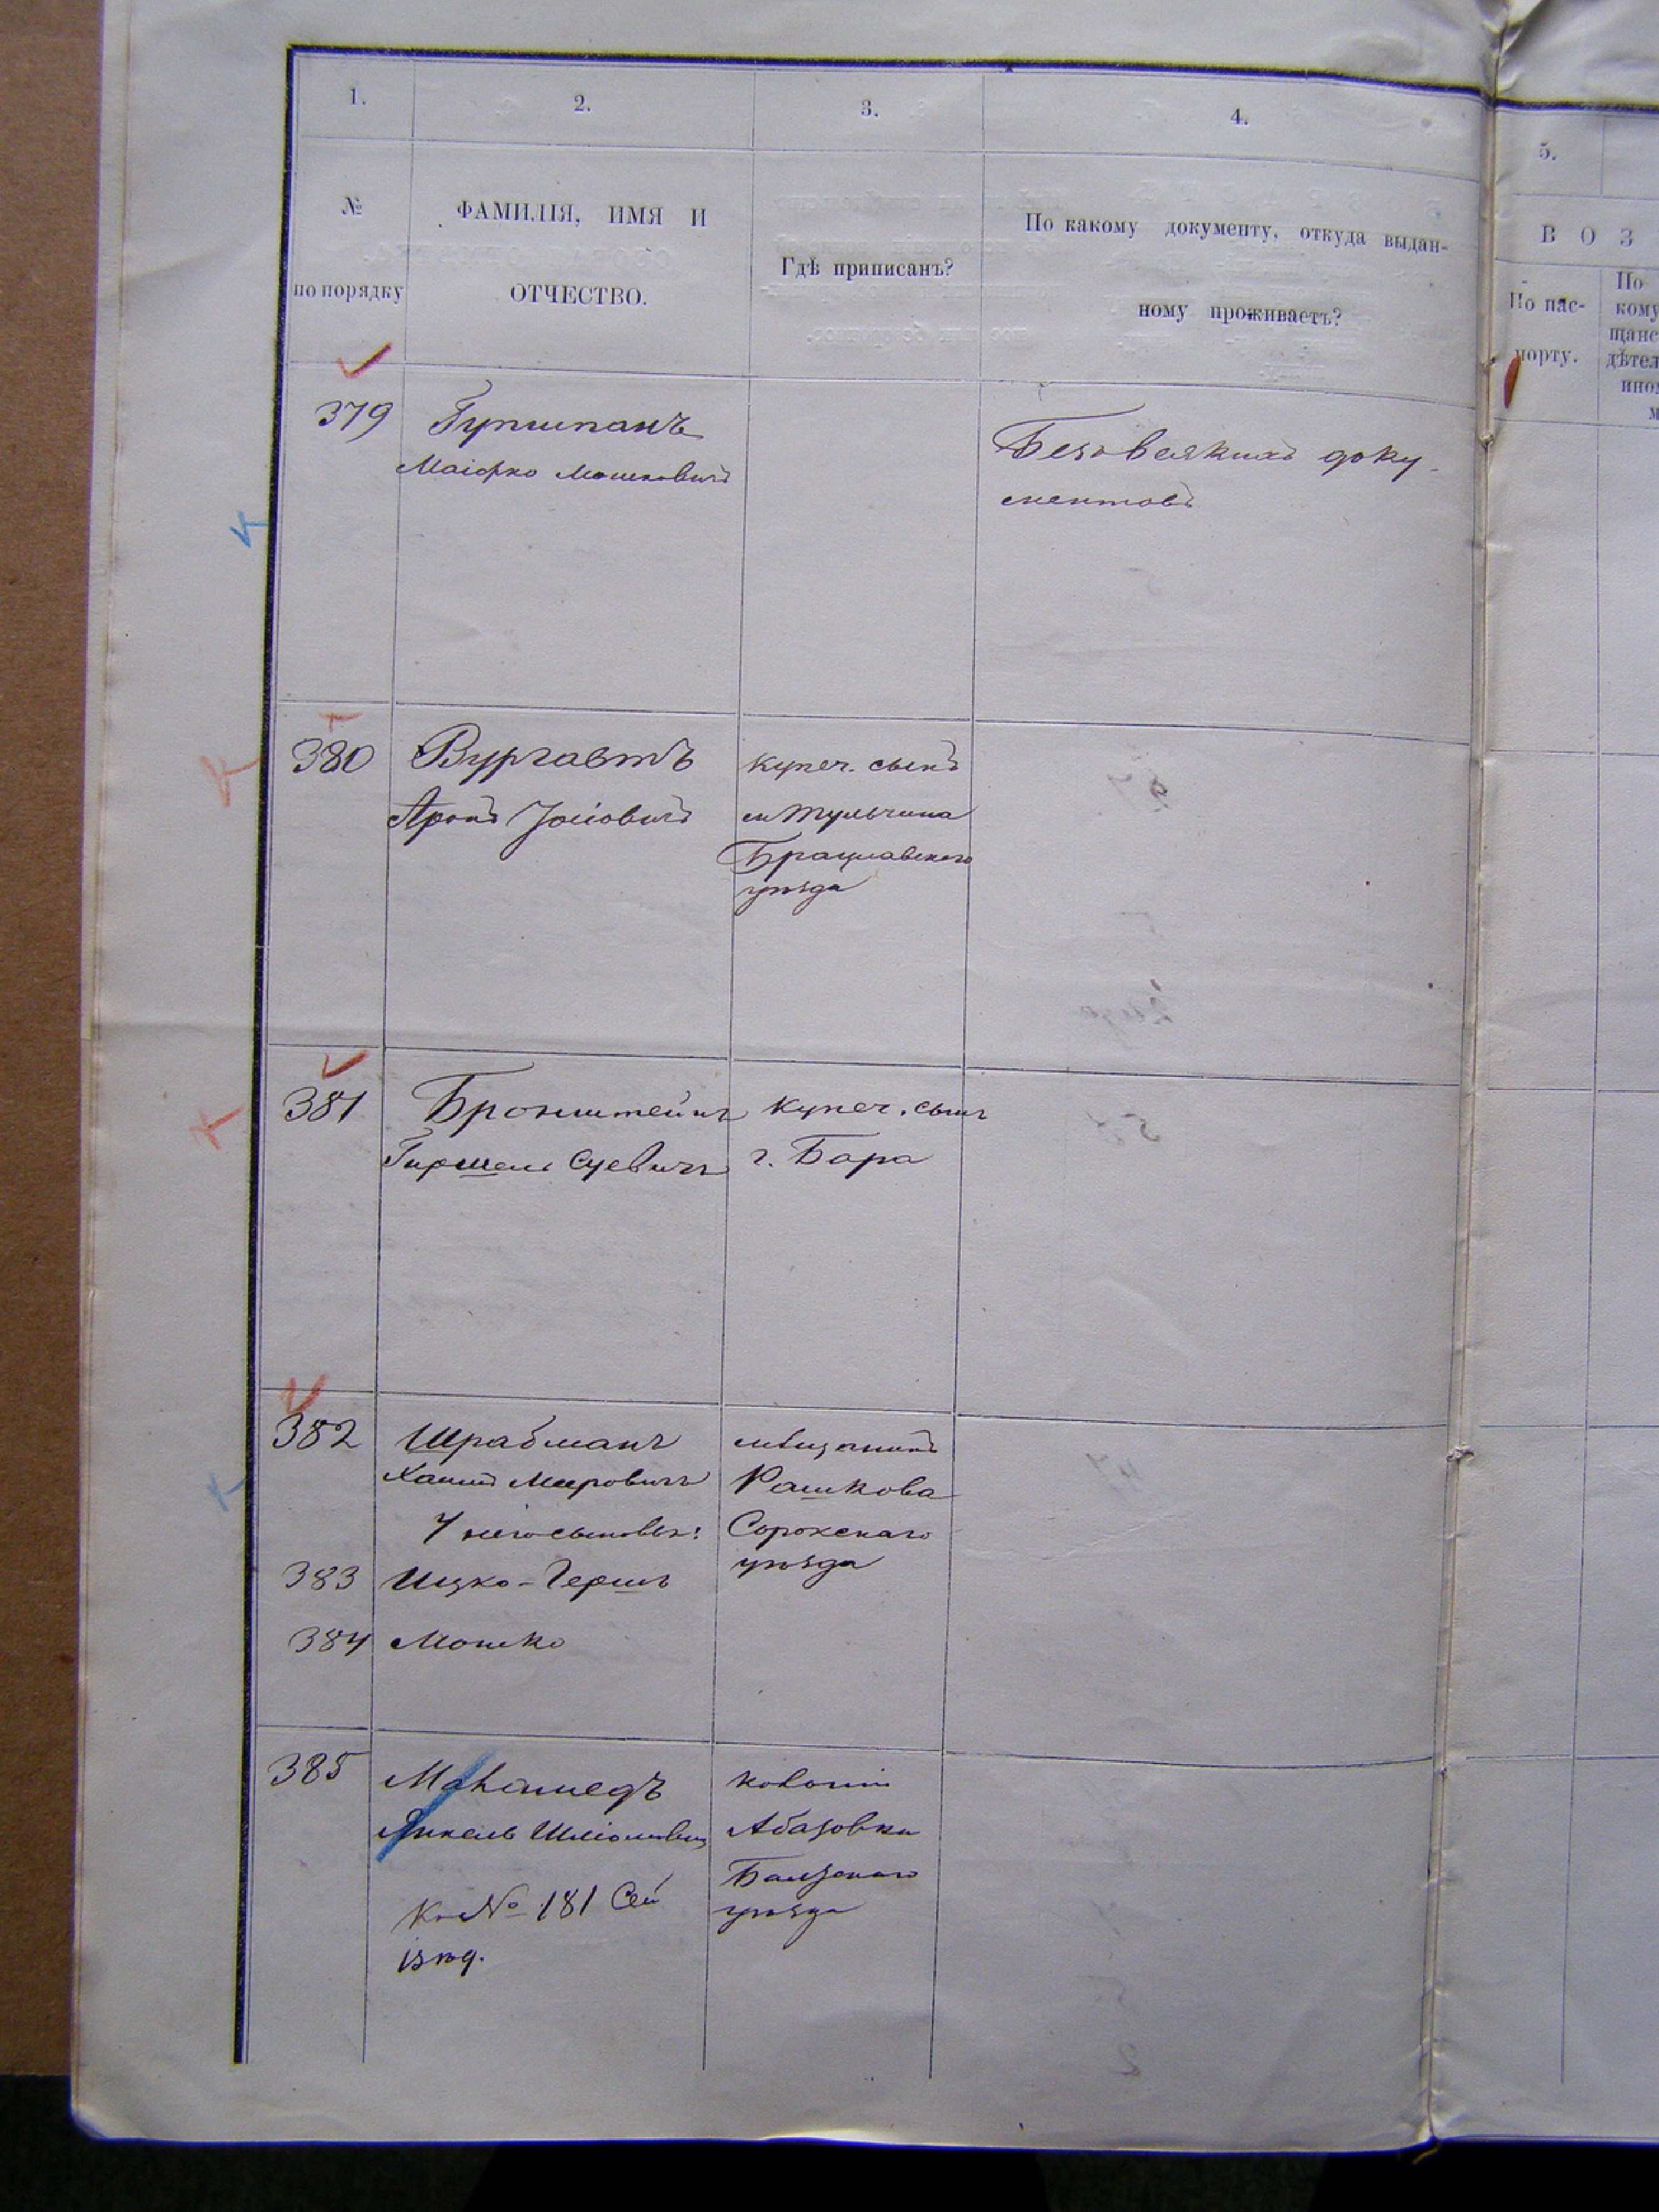 1.
2.
3.
4.
5.
№
по порядку
ФАМИЛІЯ, ИМЯ И
ОТЧЕСТВО.
Гдѣ приписанъ?
По какому документу, откуда выдан-
ному проживаетъ?
В О З
По пас-
порту.
По
кому
щанс
дѣтел
379
Мошковичъ
Безъ всякихъ доку-
ментовъ
380
Вургавтъ
Аронъ Іосіовичъ
купеч. сынъ
м Тульчина
Брацлавскаго
уѣзда
381
Бронштейнъ
Гиршель Суевичъ
купеч. сынъ
г. Бара
382
Шрабманъ
Хаимъ Мееровичъ
У него сыновья:
мѣщанинъ
Рашкова
Сорокскаго
уѣзда
383
Ицко-Гершъ
384
Мошко
385
Меламедъ
Янкель Шліомовичъ
К № 181
колоніи
Абазовки
Балтскаго
уѣзда